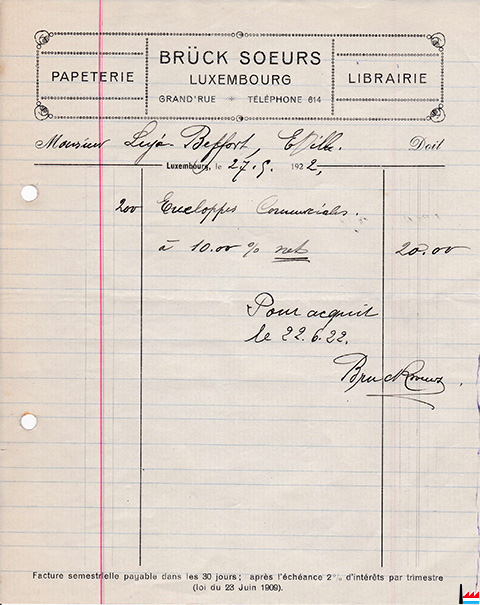 BRÜCK SOEURS
PAPETERIE
LUXEMBOURG
LIBRAIRIE
GRAND'RUE TÉLÉPHONE 614
Monsieur Beffort, E/Ville. Doit
Luxembourg, le 27.5. 1922,
200 Enveloppes Commerciales.
à 10.00 % net 20.00
Pour acquit
le 22.6.22.
Brück Soeurs
Facture semestrielle payable dans les 30 jours; après l'échéance 2% d'intérêts par trimestre
(loi du 23 Juin 1909).